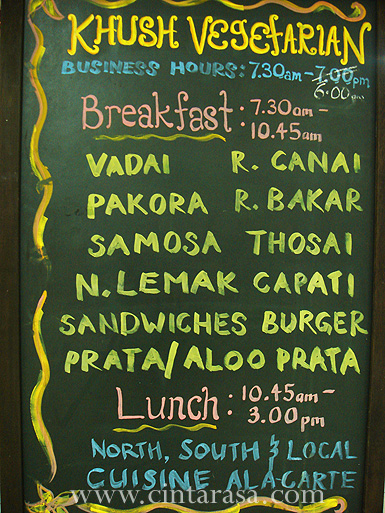 KHUSH VEGETARIAN
BUSINESS HOURS: 7.30am - 7.00pm
6.00pm
Breakfast: 7.30am -
10.45am
VADAI R. CANAI
PAKORA R. BAKAR
SAMOSA THOSAI
N. LEMAK CAPATI
SANDWICHES BURGER
PRATA/ALOO PRATA
Lunch: 10.45am -
3.00pm
NORTH, SOUTH & LOCAL
CUISINE ALA-CARTE
www.cintarasa.com